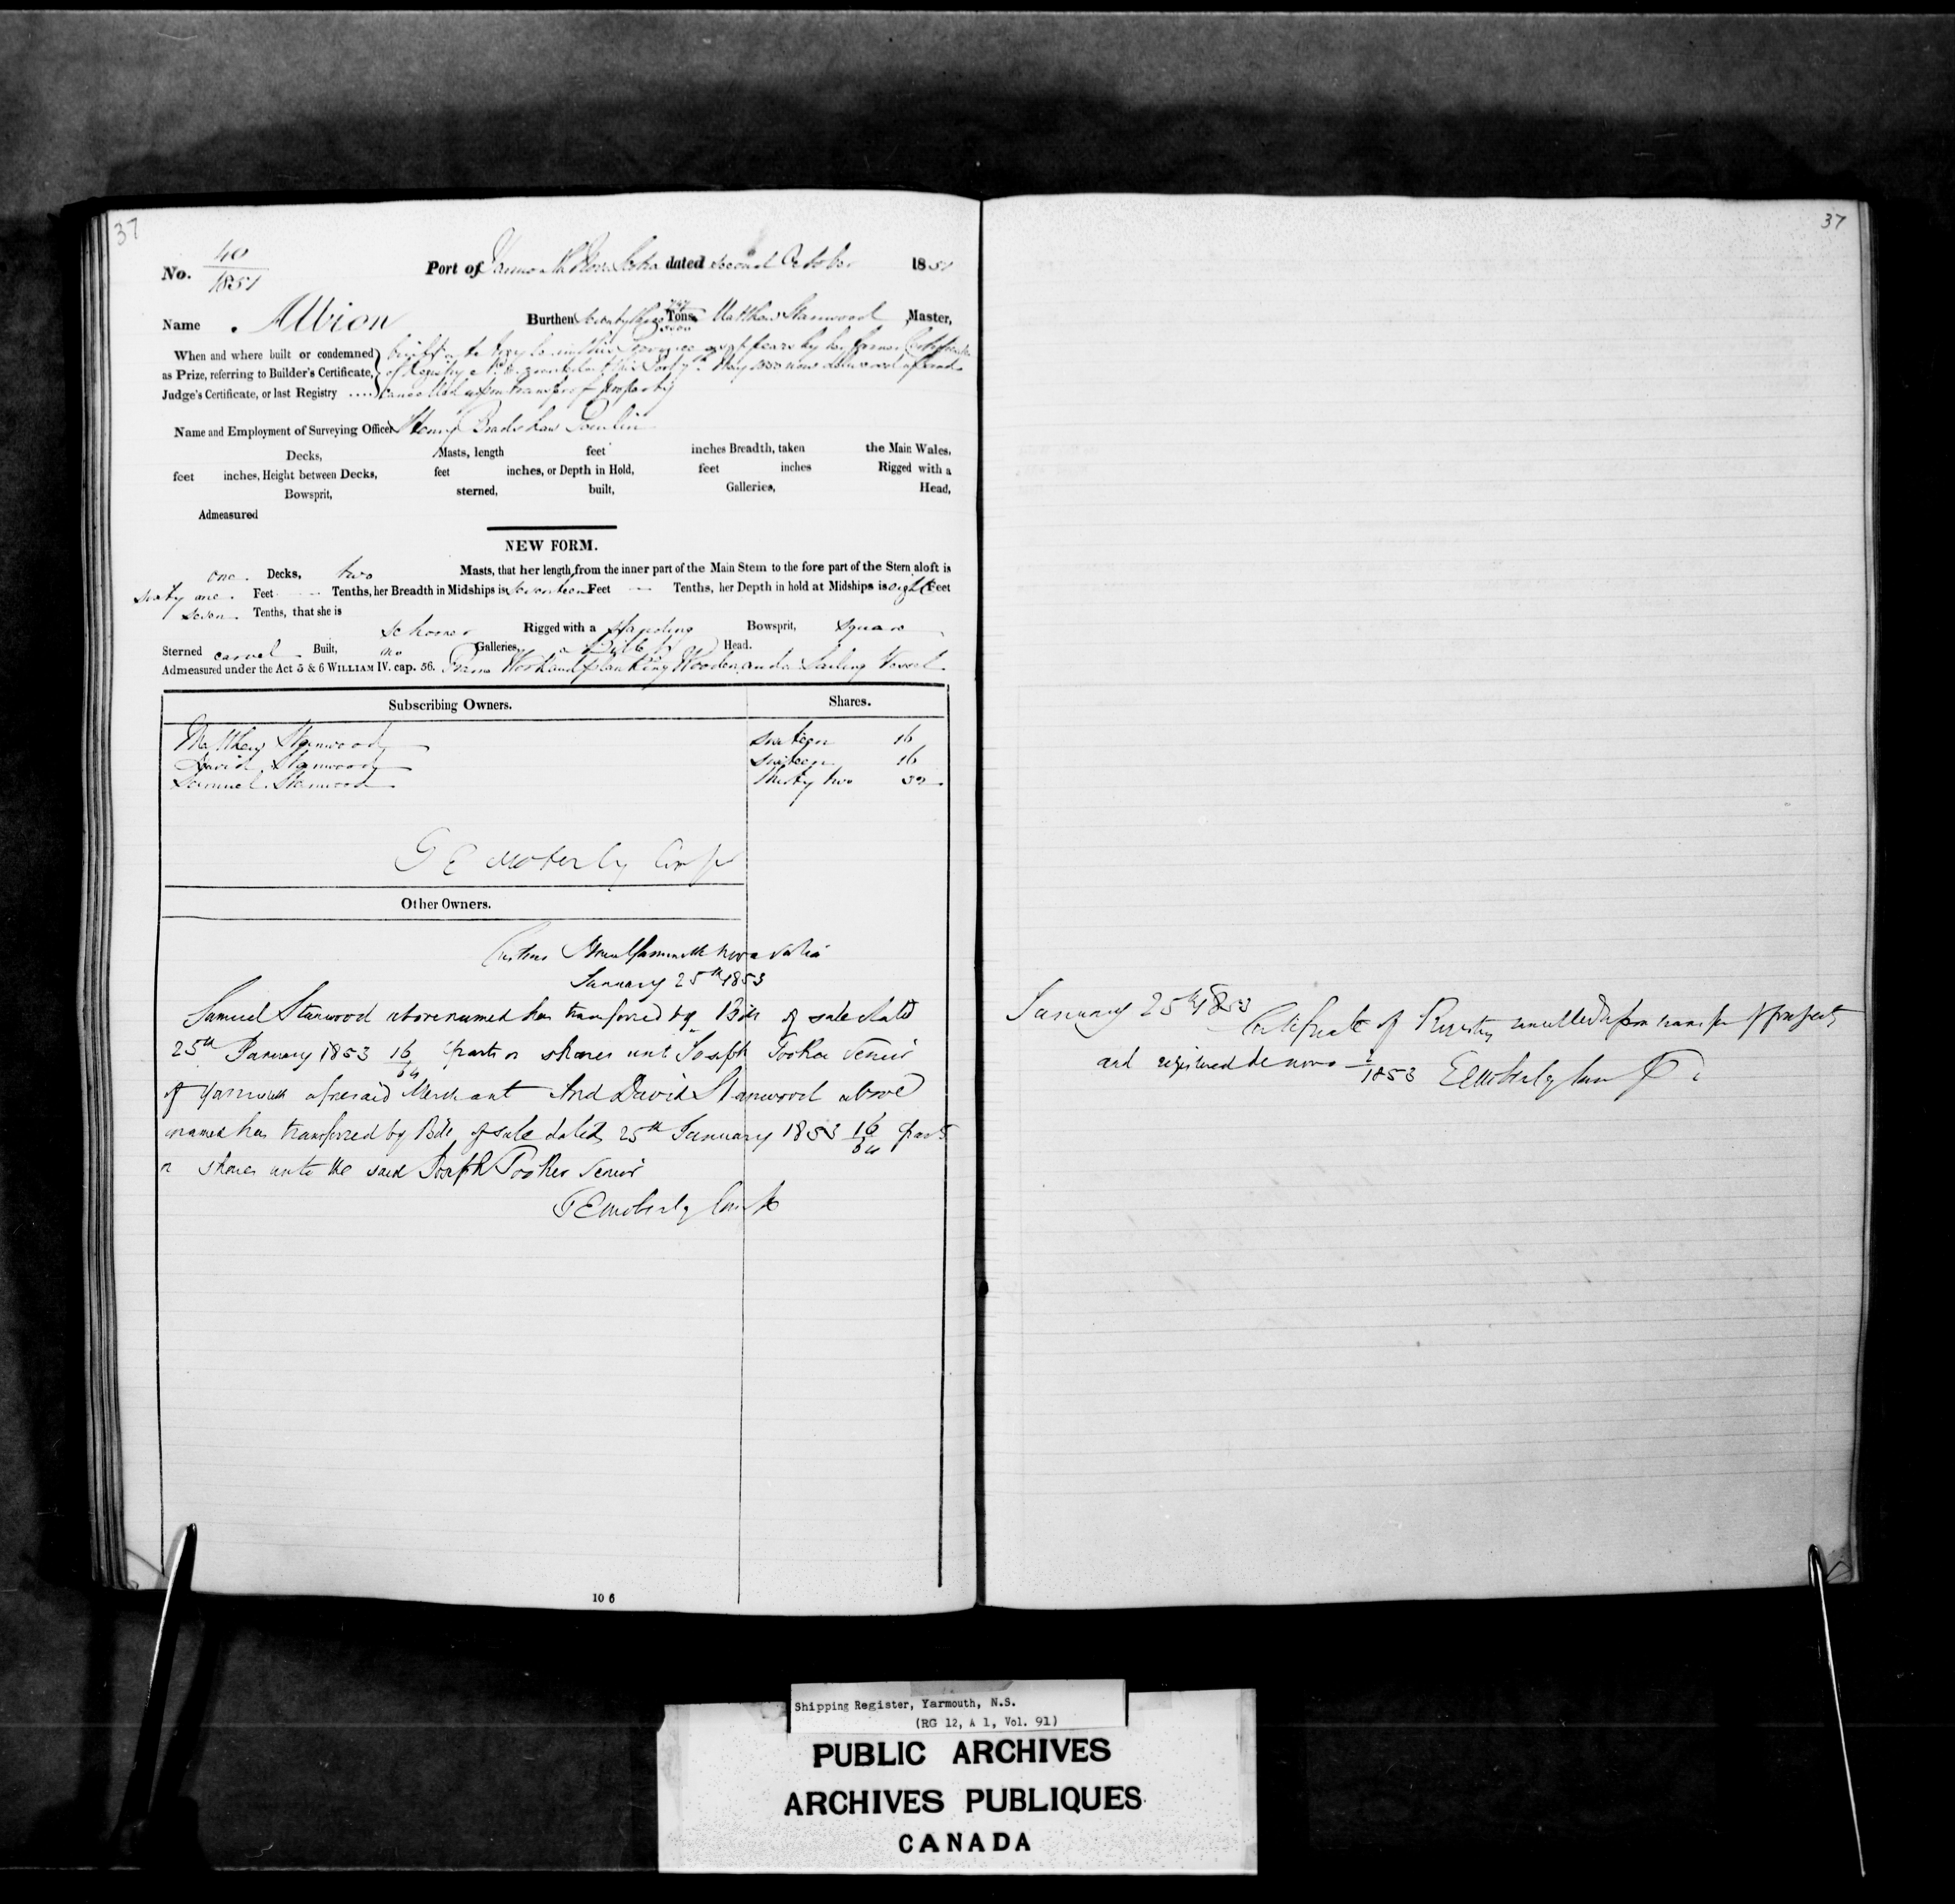 37
No. 40/1851 Port of Yarmouth Nova Scotia dated second October 1851
Name Albion Burthen Seventy three Tons Matthew Stanwood Master,
When and where built or condemned
as Prize, referring to Builder's Certificate,
Judge's Certificate, or last Registry ....
built at in this Province as appears by her former Certificate
of Registry granted at this Port 7th May now delivered up and
cancelled upon transfer of property
Name and Employment of Surveying Officer Henry Bradshaw
Decks, Masts, length feet inches Breadth, taken the Main Wales,
feet inches, Height between Decks, feet inches, or Depth in Hold, feet inches Rigged with a
Bowsprit, sterned, built, Galleries, Head,
Admeasured
NEW FORM.
one Decks, two Masts, that her length from the inner part of the Main Stem to the fore part of the Stern aloft is
sixty one Feet — Tenths, her Breadth in Midships is seventeen Feet — Tenths, her Depth in hold at Midships is eight Feet
seven Tenths, that she is
schooner Rigged with a standing Bowsprit, square
Sterned carvel Built, no Galleries, a Billet Head.
Admeasured under the Act 5 & 6 WILLIAM IV. cap. 56. Frame Work and planking Wooden and a Sailing Vessel
Subscribing Owners. Shares.
Matthew Stanwood sixteen 16
David Stanwood sixteen 16
Samuel Stanwood thirty two 32
G E Moberly Compt
Other Owners.
Customs House Yarmouth Nova Scotia
January 25th 1853
Samuel Stanwood above named has transferred by Bill of sale dated
25th January 1853 16/64 parts or shares unto Joseph Tooker Senior
of Yarmouth aforesaid Merchant And David Stanwood above
named has transferred by Bill of sale dated 25th January 1853 16/64 parts
or shares unto the said Joseph Tooker Senior
G E Moberly Compt
106
37
January 25th 1853
Certificate of Registry cancelled upon transfer of property
and registered de novo 2/1853 G E Moberly
Shipping Register, Yarmouth, N.S.
(RG 12, A 1, Vol. 91)
PUBLIC ARCHIVES
ARCHIVES PUBLIQUES
CANADA